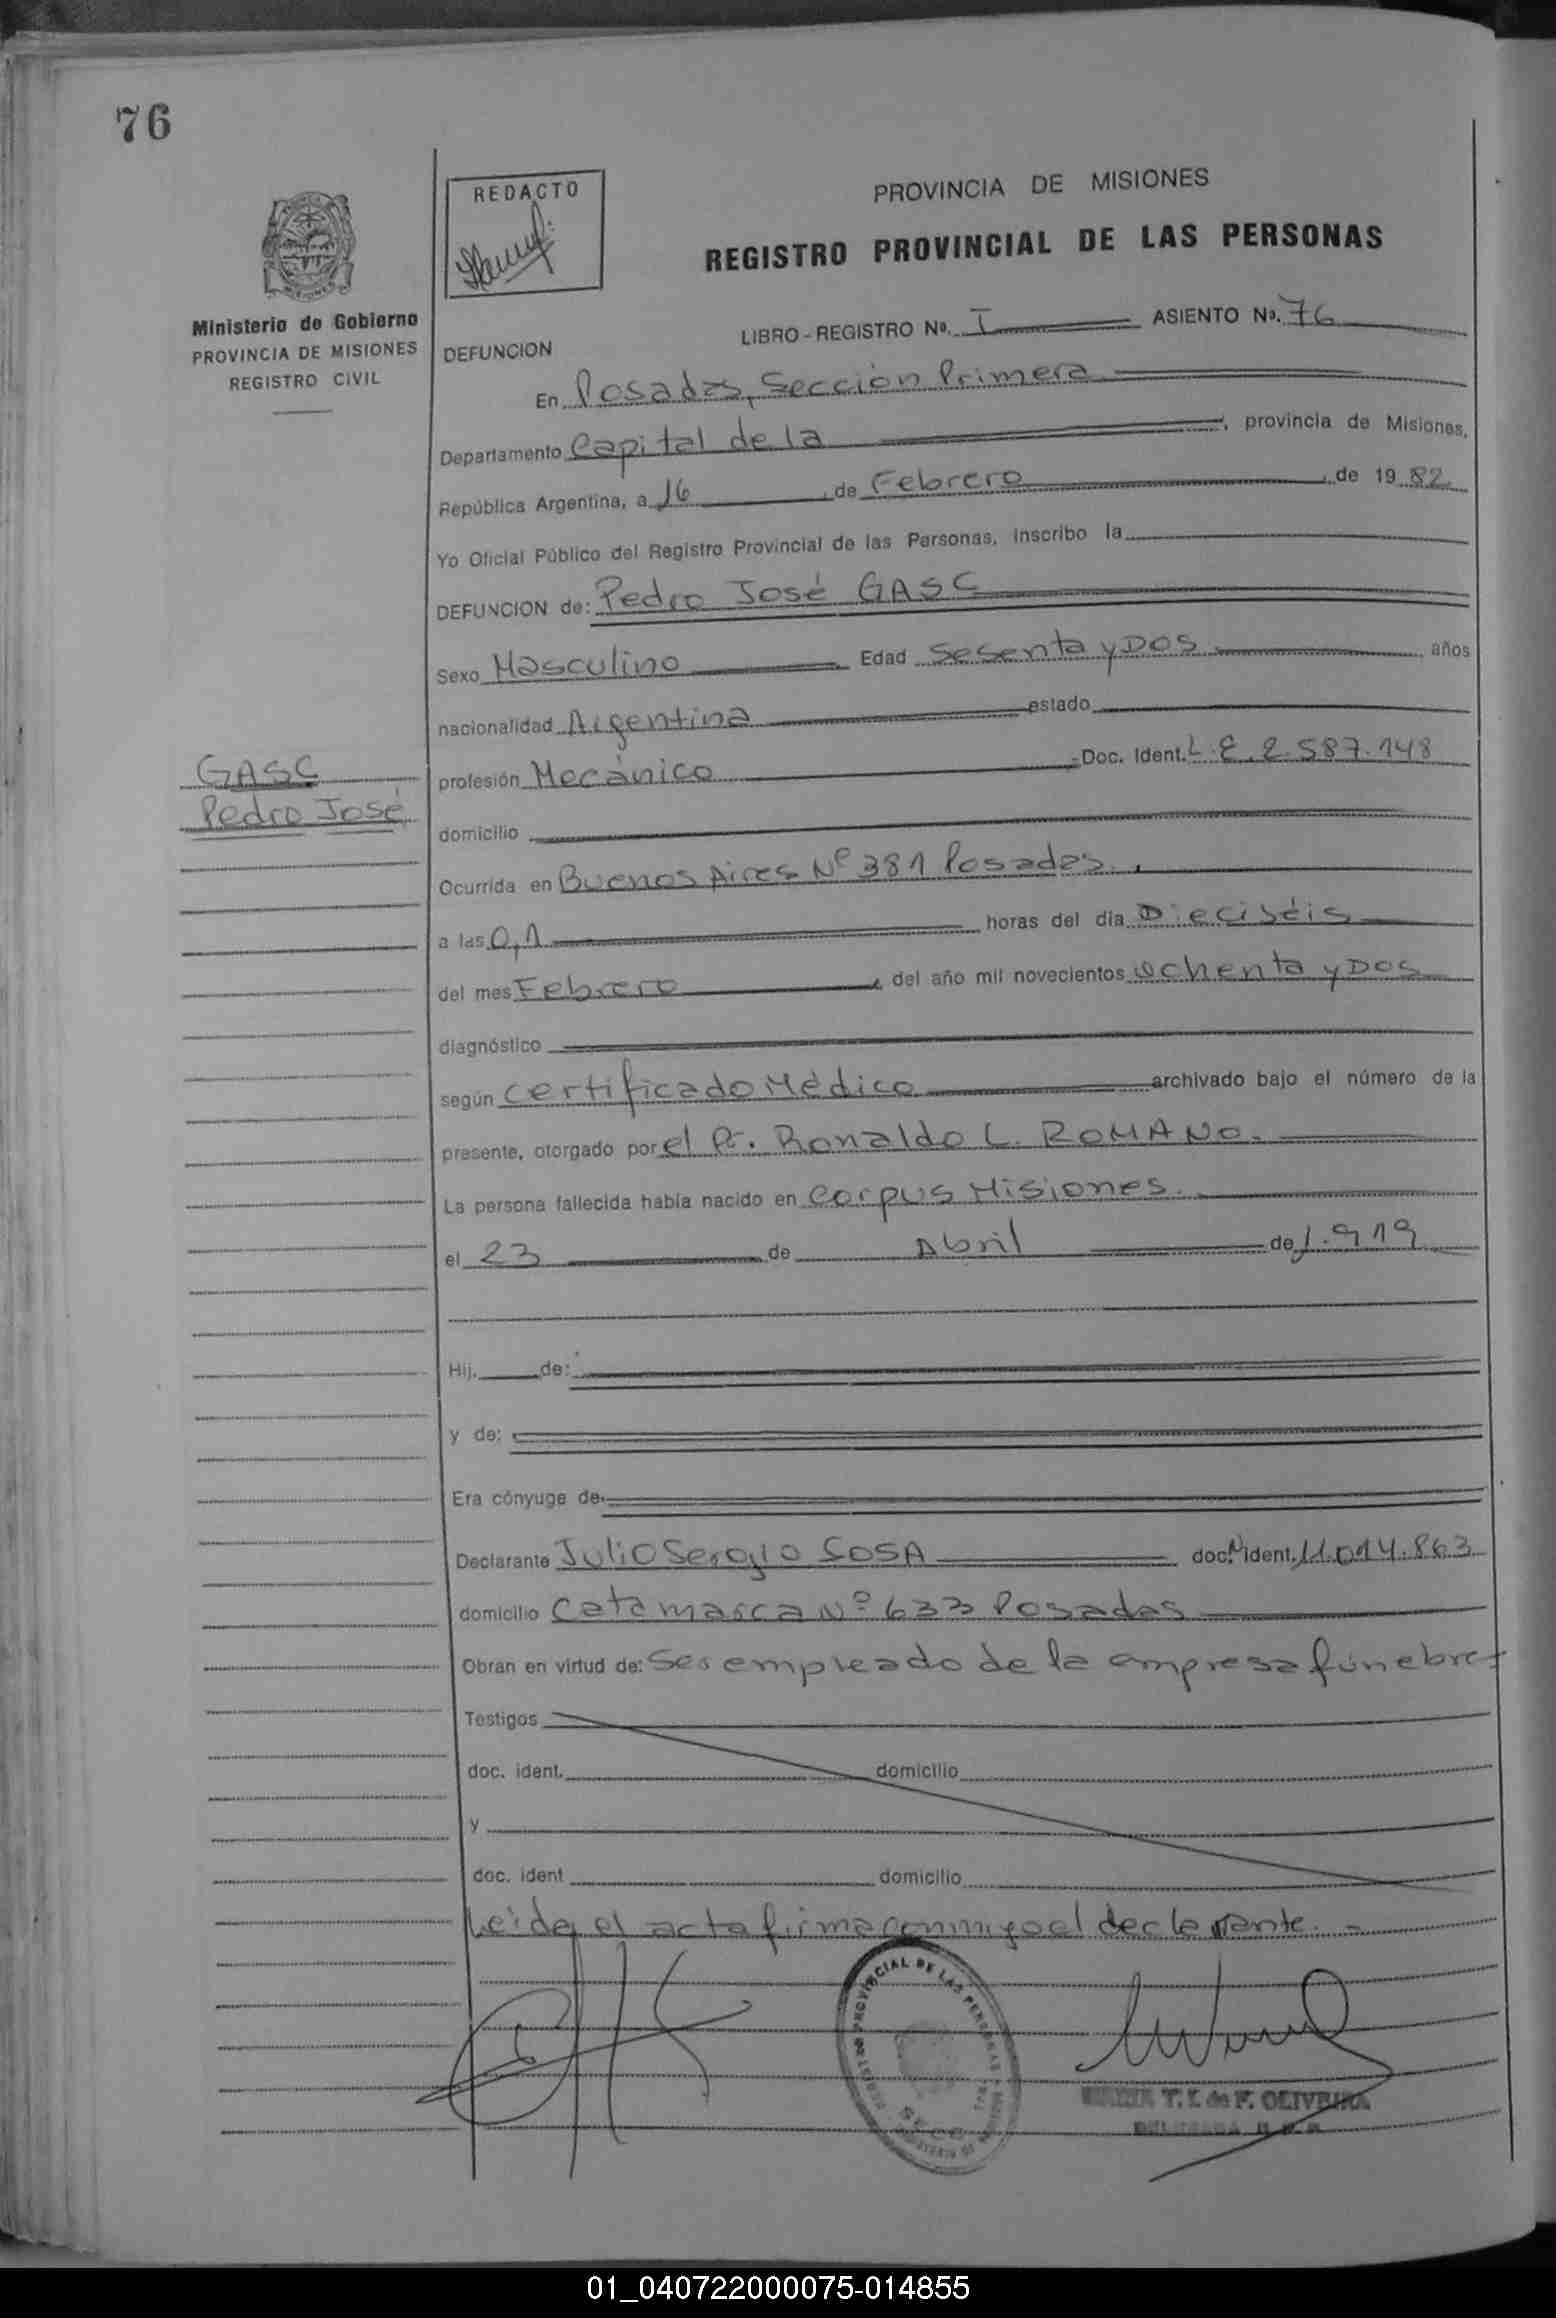 76
REDACTO
PROVINCIA DE MISIONES
REGISTRO PROVINCIAL DE LAS PERSONAS
MISIONES
Ministerio de Gobierno
PROVINCIA DE MISIONES
REGISTRO CIVIL
LIBRO-REGISTRO No. I ASIENTO No. 76
DEFUNCION
En Posadas, Sección Primera
Departamento Capital de la, provincia de Misiones,
República Argentina, a 16, de Febrero, de 1982
Yo Oficial Público del Registro Provincial de las Personas, inscribo la
DEFUNCION de: Pedro José GASC
Sexo Masculino Edad Sesenta y Dos años
nacionalidad Argentina estado
GASC
Pedro José
profesión Mecánico Doc. Ident. L.E. 2.587.148
domicilio
Ocurrida en Buenos Aires Nº 381 Posadas.
a las 0,1 horas del día Dieciséis
del mes Febrero, del año mil novecientos ochenta y Dos
diagnóstico
según certificado Médico archivado bajo el número de la
presente, otorgado por el Dr. Ronaldo L. ROMANO.
La persona fallecida había nacido en Corpus Misiones.
el 23 de Abril de 1.919
Hij. de:
y de:
Era cónyuge de
Declarante Julio Sergio SOSA doc. ident. 11.014.863
domicilio Catamarca Nº 633 Posadas
Obran en virtud de: Ser empleado de la empresa fúnebre
Testigos
doc. ident. domicilio
y
doc. ident domicilio
Leída el acta firma conmigo el declarante.
REGISTRO PROVINCIAL DE LAS PERSONAS
T. I. de F. OLIVEIRA
01_040722000075-014855